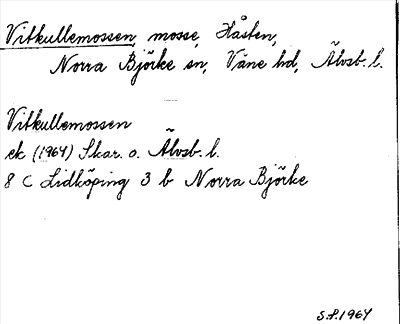 Vitkullemossen, mosse, Håsten,
Norra Björke sn, Väne hd, Älvsb. l.
Vitkullemossen
ek (1964) Skar. o. Älvsb. l.
8 C Lidköping 3 b Norra Björke
S.F. 1964